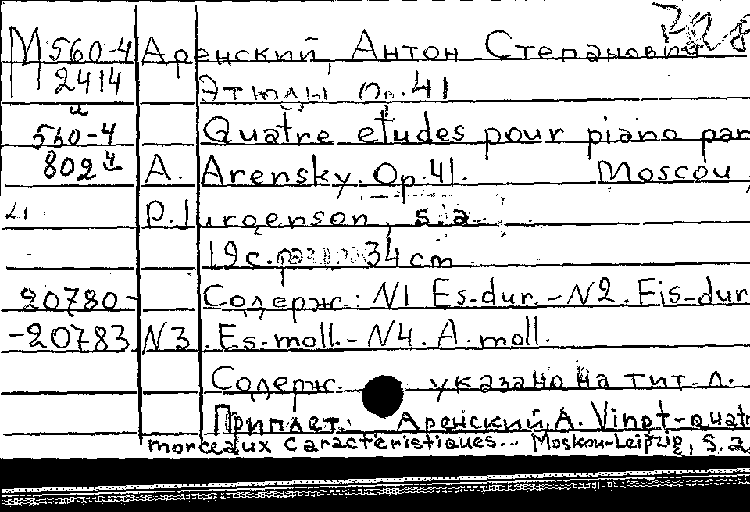 М 560-4 Аренский, Антон Степанович 228
2414 Этюды Op.41
и
560-4 Quatre etudes pour piano par
802 и A. Arensky. Op.41. Moscou,
P. Jurgenson, s.a.
19 с. 34 cm
20780- Содерж.: N1 Es-dur. - N2. Fis-dur
-20783 N3. Es-moll. - N4. A-moll.
Содерж. указано на тит. л.
Приплет. Аренский, А. Vingt-quatr
morceaux caractéristiques... Moskou-Leipzig, s.a.